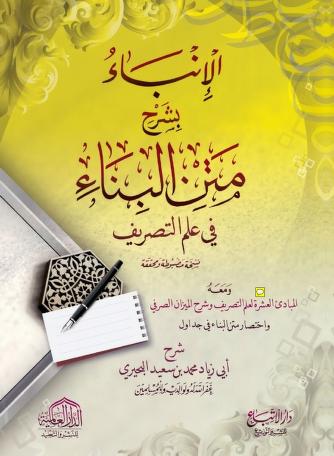 الإنباء
بشرح
متن البناء
في علم التصريف
نسخة مضبوطة ومحققة
ومعه
المبادئ العشرة لعلم التصريف وشرح الميزان الصرفي
واختصار متن البناء في جداول
شرح
أبي زياد محمد بن سعيد البحيري
غفر الله له ولوالديه وللمسلمين
الدار العالمية
للنشر والتجليد
دار الاتباع
للنشر والتوزيع